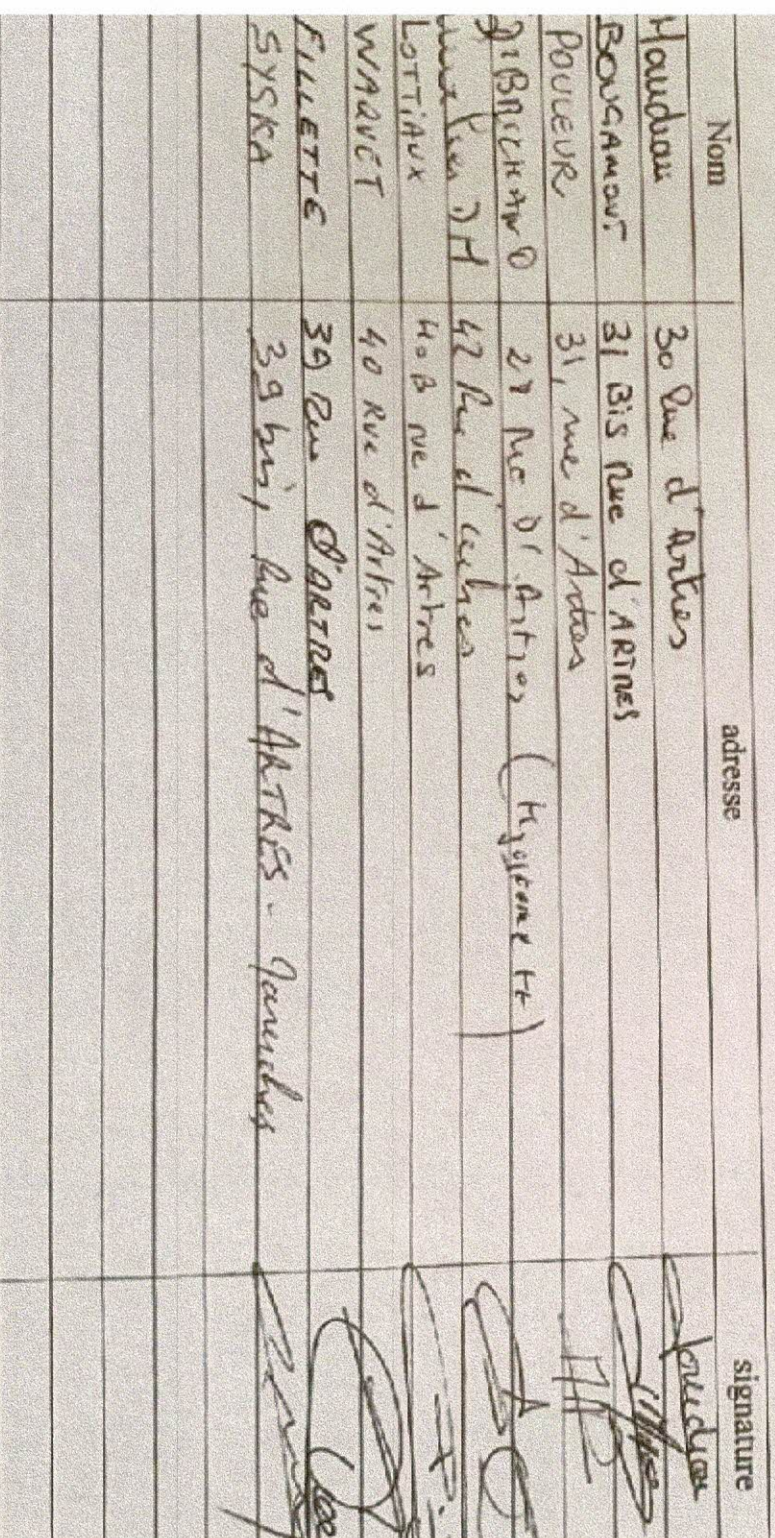 Nom adresse signature
Haudiau 30 Rue d'Artres
BOUGAMONT 31 Bis Rue d'ARTRES
POULEUR 31, rue d'Artres
28 Rue D'Artres
42 Rue d'Artres
LOTTIAUX 40B rue d'Artres
WAQUET 40 Rue d'Artres
FILLETTE 39 Rue D'ARTRES
SYSKA 39 bis, Rue d'ARTRES -